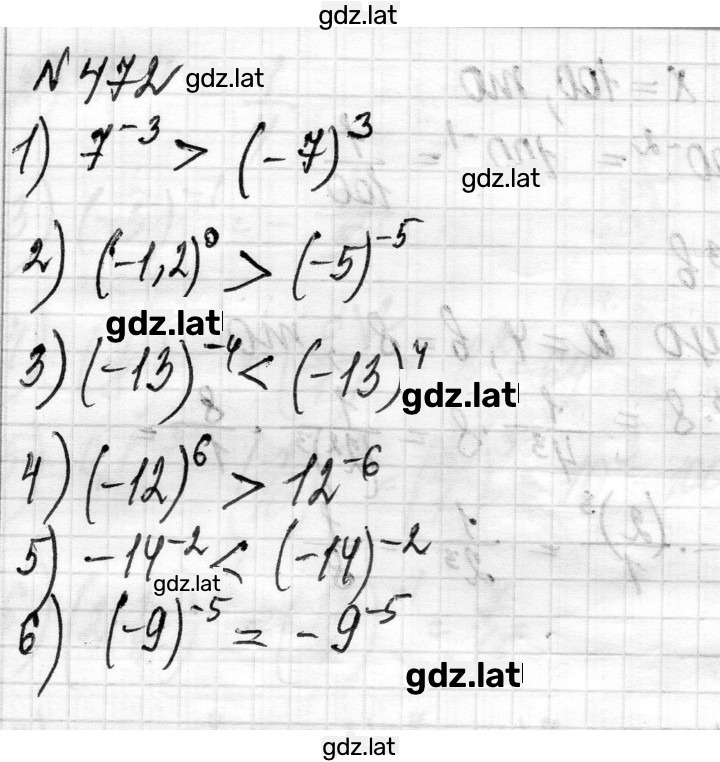 gdz.lat
№ 472 gdz.lat
1) 7⁻³ > (-7)³
gdz.lat
2) (-1,2)⁰ > (-5)⁻⁵
gdz.lat
3) (-13)⁻⁴ < (-13)⁴
gdz.lat
4) (-12)⁶ > 12⁻⁶
5) -14⁻² < (-14)⁻²
gdz.lat
6) (-9)⁻⁵ = -9⁻⁵
gdz.lat
gdz.lat